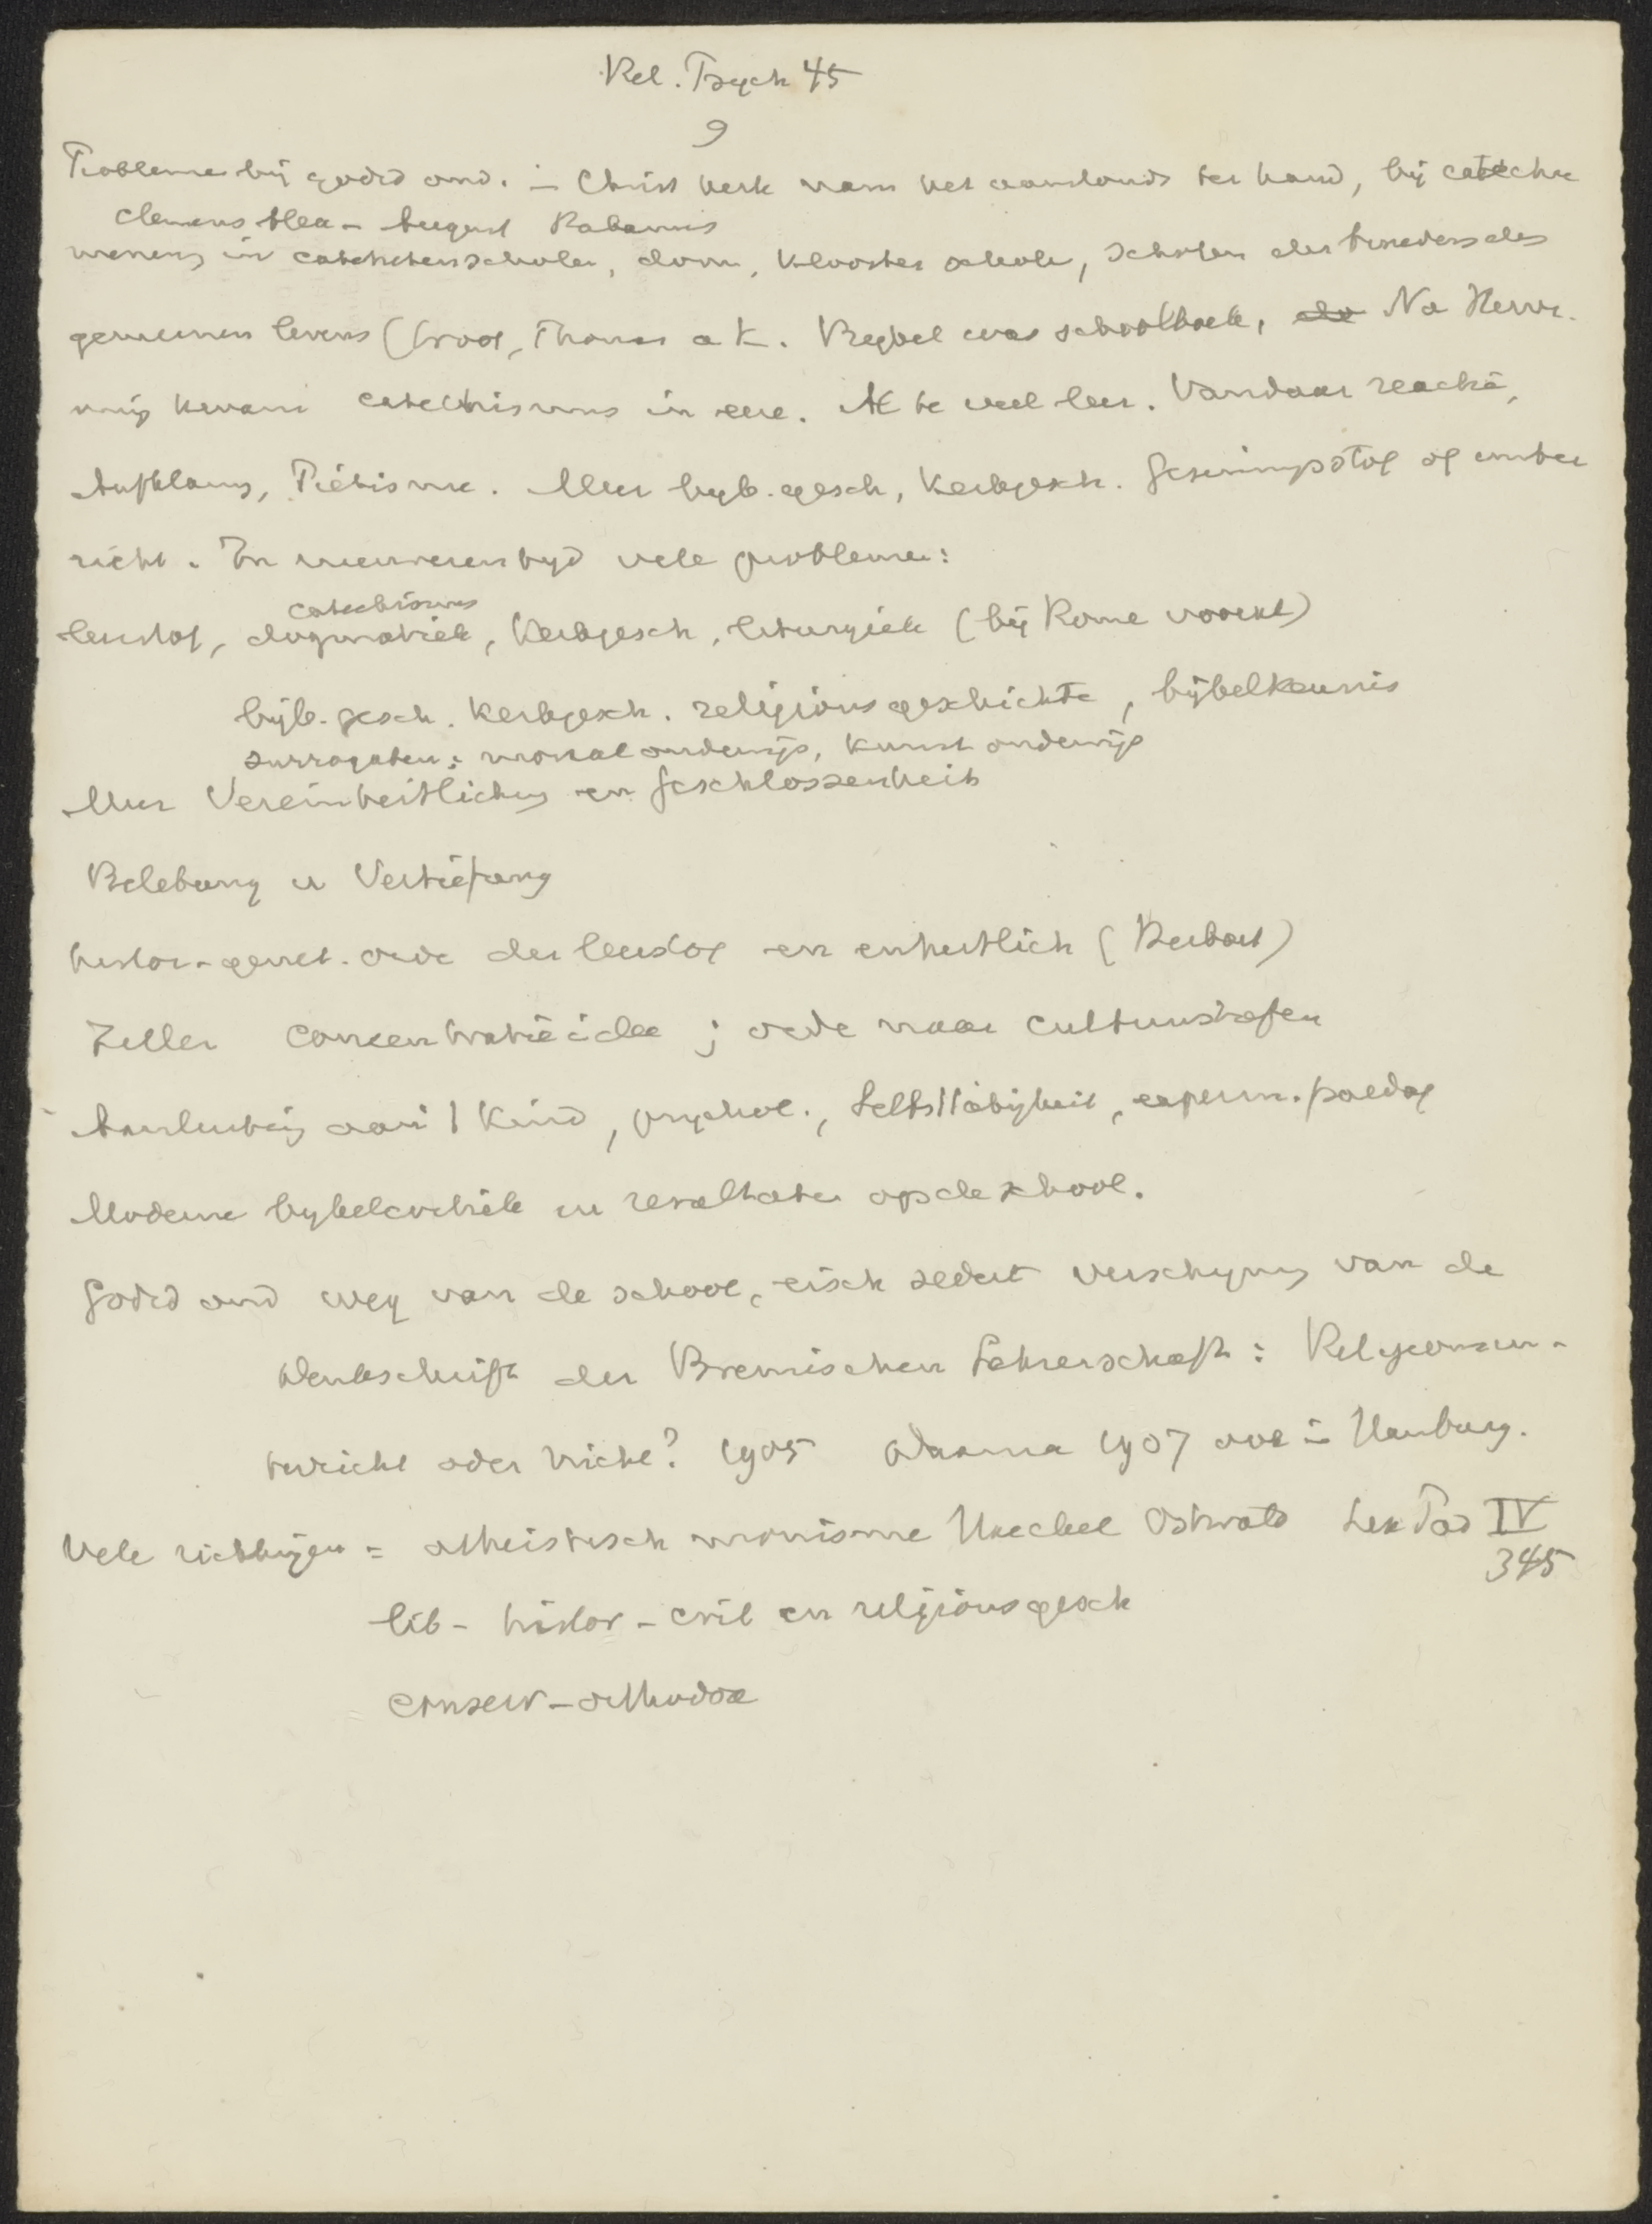 Rel. Psych 45
9
Probleme bij godsd ond. in Christ kerk nam het aanstonds ter hand, bij catechu
Clemens Alex - August Rabanus
menen, in catechetenscholen, dom, klooster schole, scholen der broeders des
gemeenen levens (Groot, Thomas a K. Bybel was schoolboek, Na Hervor-
ming kwam catechismus in eere. Al te veel leer. Vandaar reactie,
Aufklärung, Piëtisme. Meer byb. gesch, Kerkgesch. Gesinnungsstof of onder
richt. In nieuweren tyd vele problemen:
catechismus
leerstof, dogmatiek, Kerkgesch, liturgiek (bij Rome vooral)
bijb. gesch. kerkgesch. religionsgeschichte, bijbelkennis
surrogaten: moraal onderwijs, kunst onderwijs
Meer Vereinheitlichung en Geschlossenheit
Belebung u Vertiefung
histor-genet. orde der leerstof en einheitlich (Herbart)
Ziller concentratieidee; orde naar cultuurstufen
Aansluiting aan 't Kind, psychol., Selbsttätigkeit, experim. paedag
Moderne bybelcritiek en resultaten op de school.
Godsd ond weg van de school, eisch sedert verschyning van de
Denkschrift der Bremischen Lehrerschaft: Religionsun-
terricht oder nicht? 1905 Daarna 1907 ook in Hamburg.
Vele richtingen = atheistisch monisme Haeckel Ostwald Lex Päd IV
345
lib - histor - crit en religionsgesch
conserv - orthodox